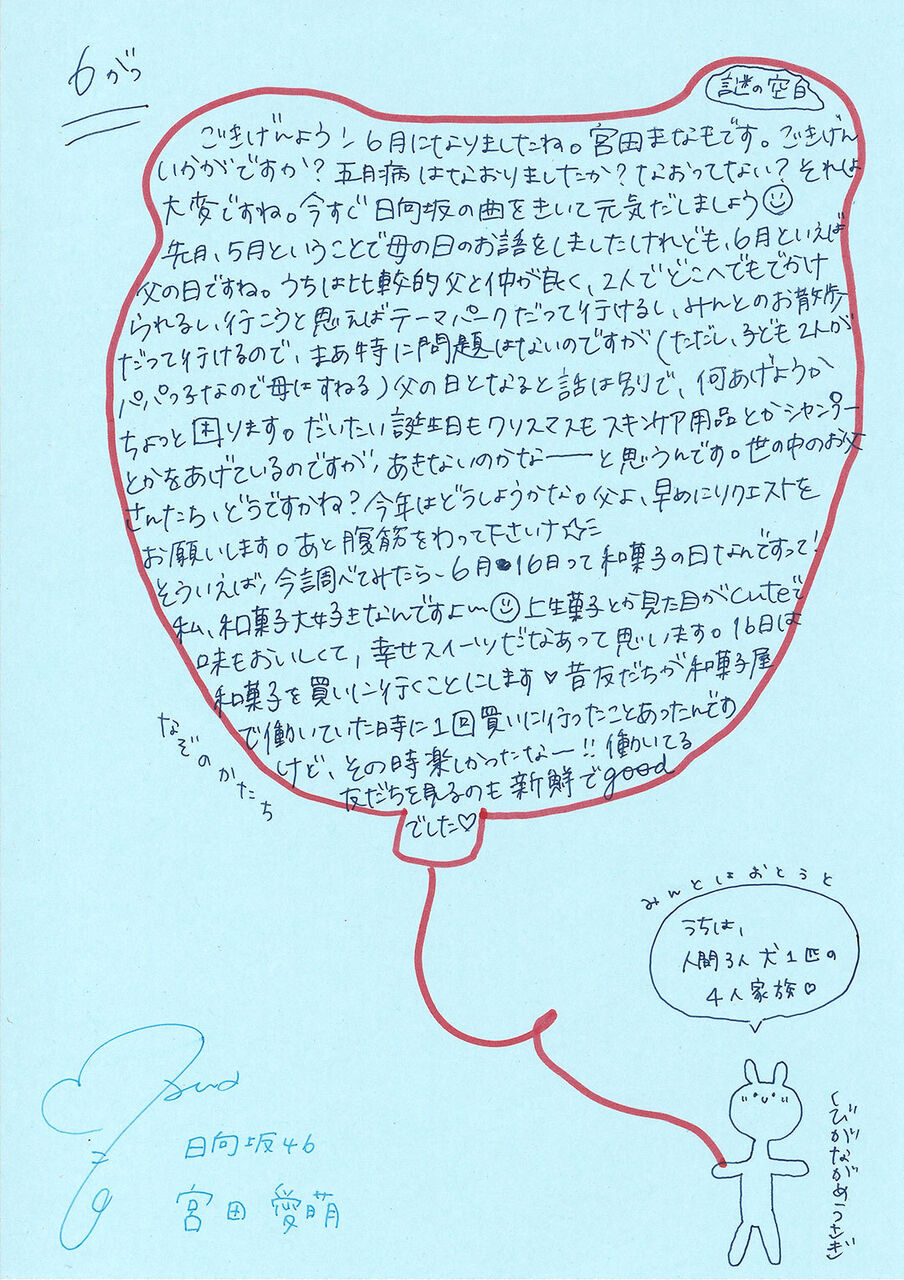 6がつ
謎の空白
ごきげんよう！6月になりましたね。宮田まなもです。ごきげん
いかがですか？五月病はなおりましたか？なおってない？それは
大変ですね。今すぐ日向坂の曲をきいて元気だしましょう
先月、5月ということで母の日のお話をしましたけれども、6月といえば
父の日ですね。うちは比較的父と仲が良く、2人でどこへでもでかけ
られるし、行こうと思えばテーマパークだって行けるし、みんとのお散歩
だって行けるので、まあ特に問題はないのですが(ただし、子ども2人が
パパっ子なので母はすねる)父の日となると話は別で、何あげようか
ちょっと困ります。だいたい誕生日もクリスマスもスキンケア用品とかシャンプー
とかをあげているのですが、あきないのかなーーと思うんです。世の中のお父
さんたち、どうですかね？今年はどうしようかな。父よ、早めにリクエストを
お願いします。あと腹筋をわって下さいな☆
そういえば、今調べてみたら、6月16日って和菓子の日なんですって！
私、和菓子大好きなんですよ〜上生菓子とか見た目がcuteで
味もおいしくて、幸せスイーツだなあって思います。16日は
和菓子を買いに行くことにします♥昔友だちが和菓子屋
で働いていた時に1回買いに行ったことあったんです
けど、その時楽しかったなー!!働いてる
友だちを見るのも新鮮でgood
でした♡
なぞのかたち
みんとはおとうと
うちは、
人間3人犬1匹の
4人家族♡
くびがながめうさぎ
日向坂46
宮田愛萌